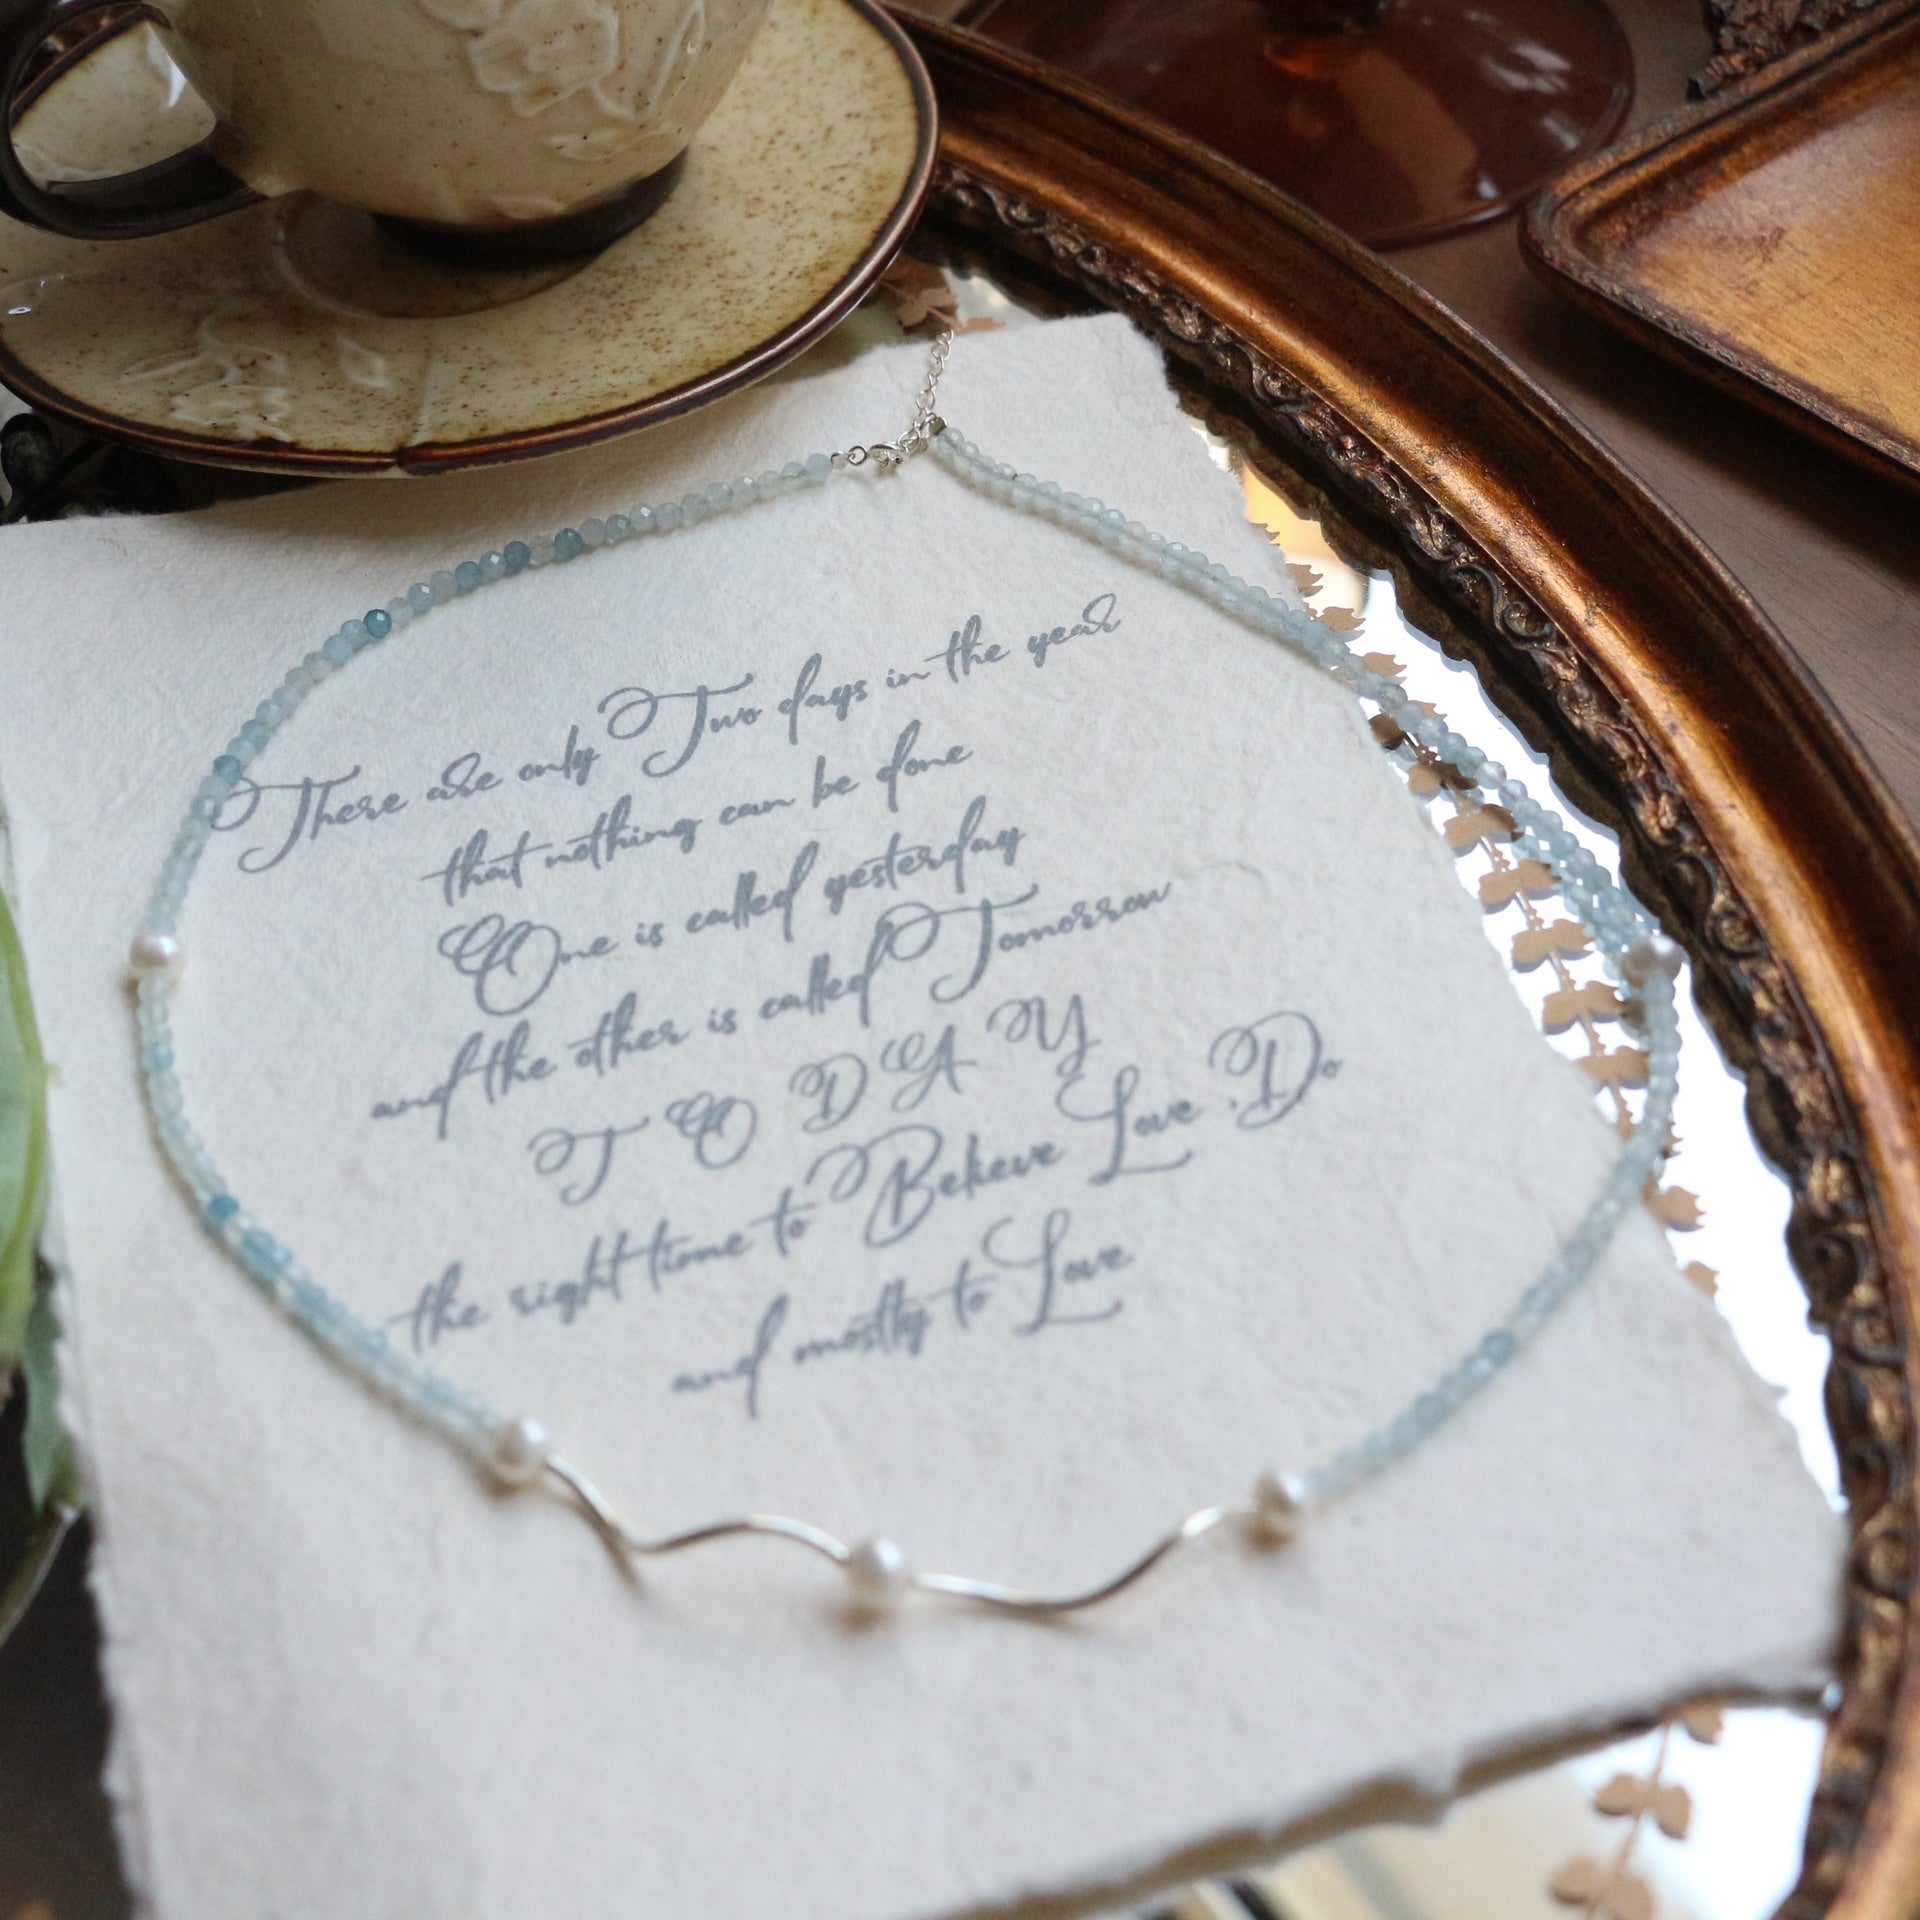 There are only Two days in the year
that nothing can be done
One is called yesterday
and the other is called Tomorrow
T O D A Y
the right time to Believe Love .Do
and mostly to Love